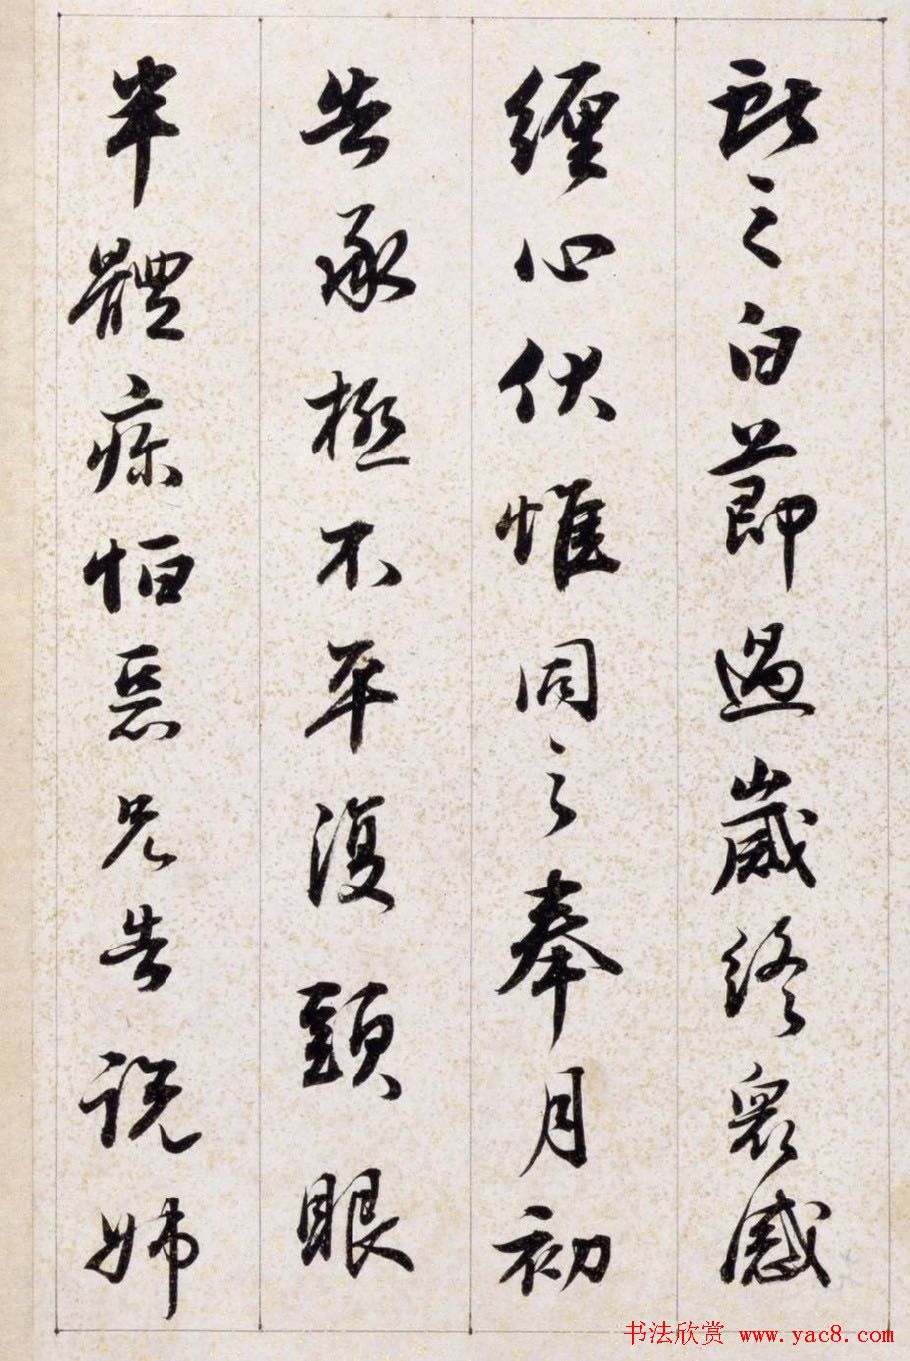 獻之白節過歲終眾感
纏心伏惟同之奉月初
告承極不平復頭眼
半體恒惡兄告說姊
书法欣赏 www.yac8.com